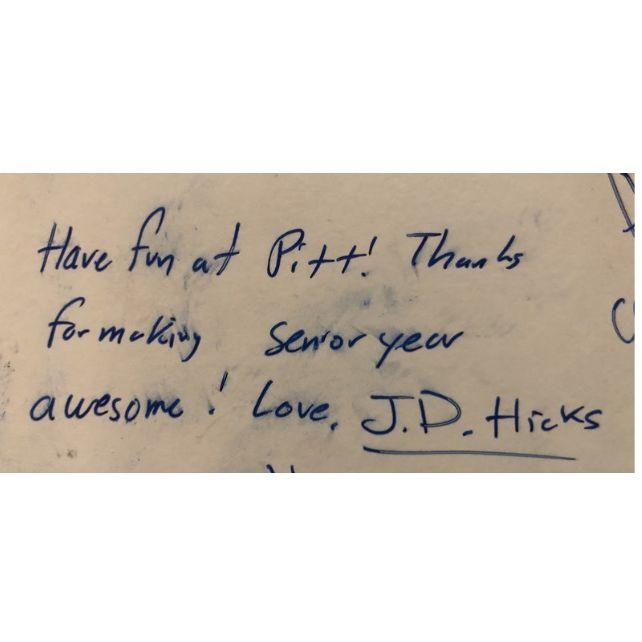 Have fun at Pitt! Thanks
for making senior year
awesome! Love, J.D. Hicks